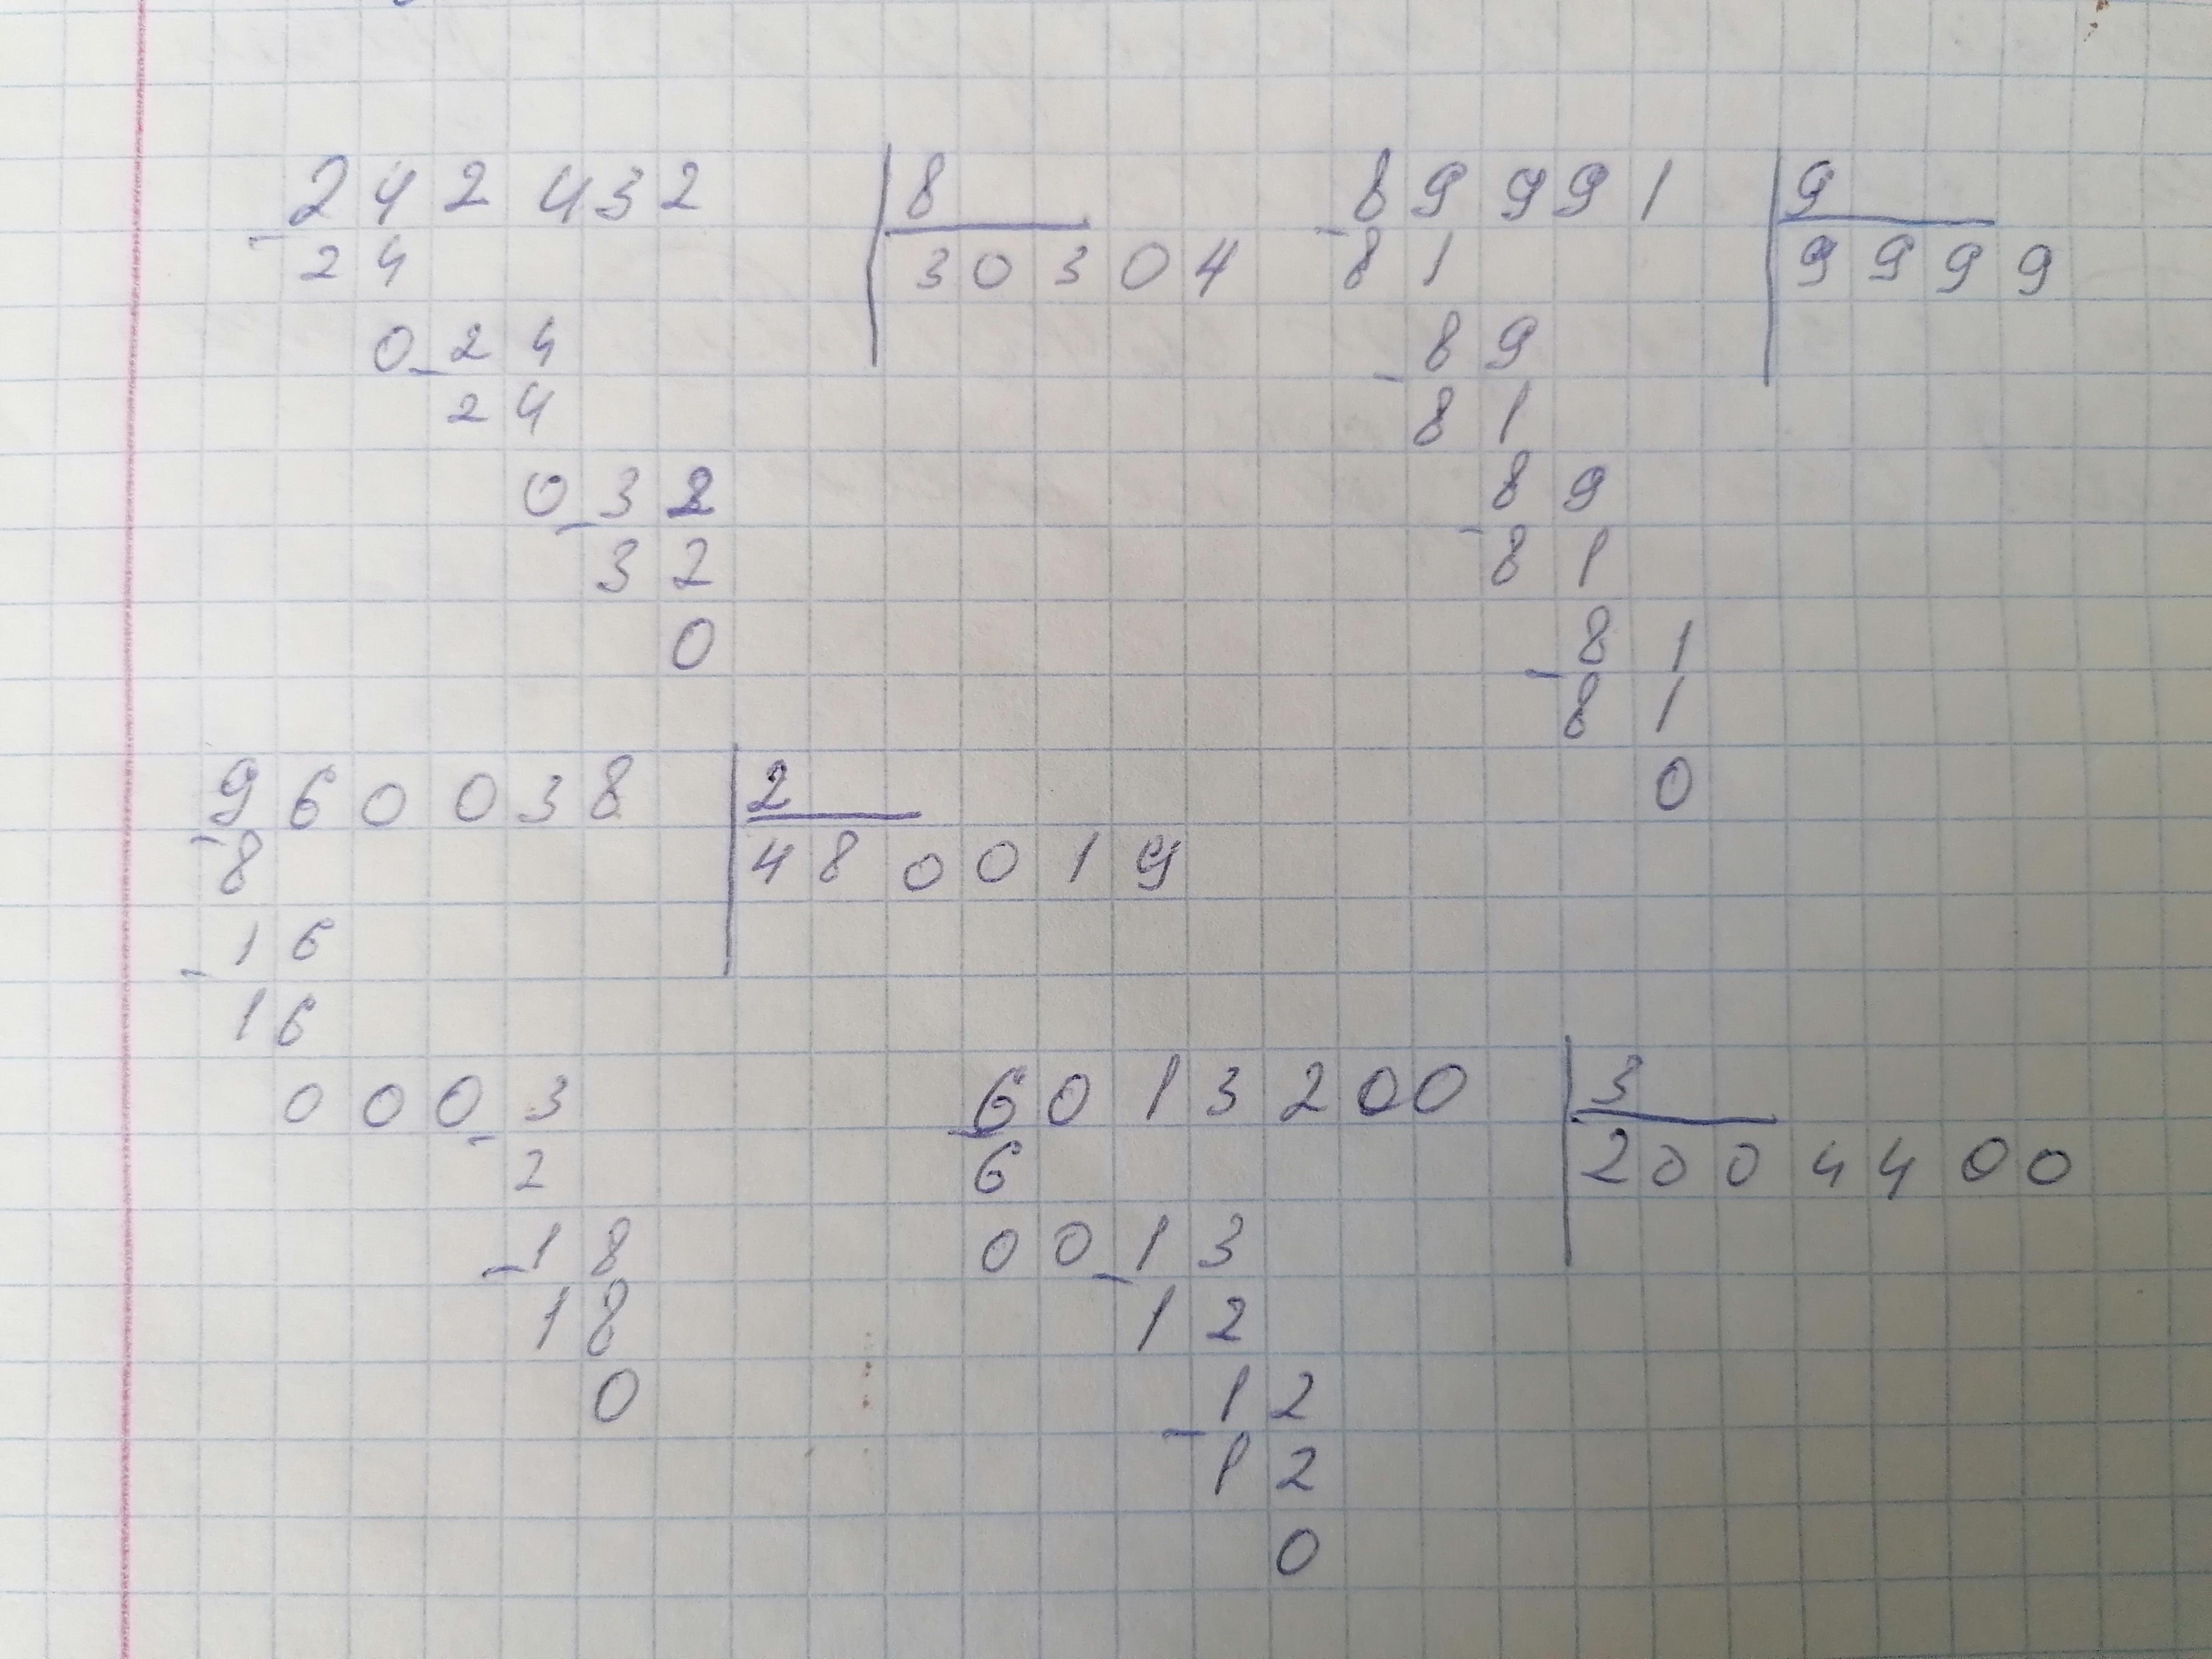 242 432 | 8
- 24 | 30304
0 - 24
24
0 - 32
32
0
89 991 | 9
- 81 | 9999
89
- 81
89
- 81
81
- 81
0
960 038 | 2
- 8 | 480019
16
- 16
0003
- 2
- 18
18
0
6013200 | 3
- 6 | 2004400
00 - 13
12
12
- 12
0